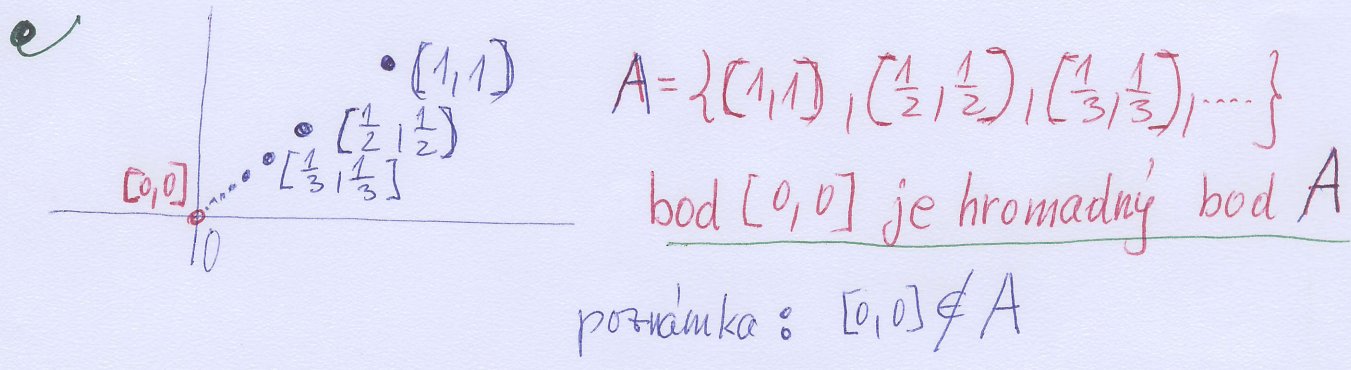 [1,1]
[1/2, 1/2]
[1/3, 1/3]
[0,0]
0
A = {[1,1], [1/2, 1/2], [1/3, 1/3], ....}
bod [0,0] je hromadný bod A
poznámka: [0,0] ∉ A